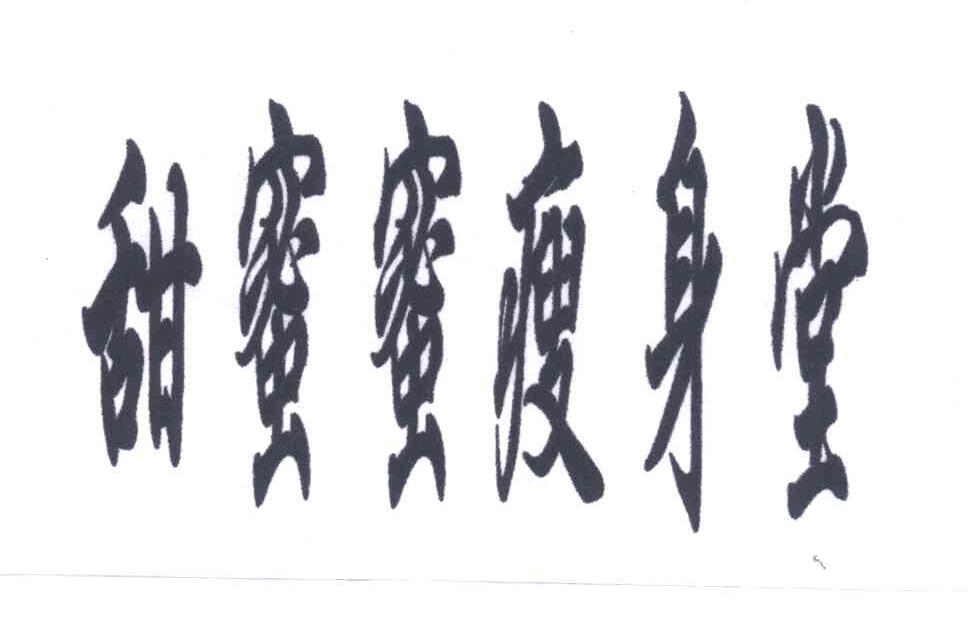 甜蜜蜜瘦身堂